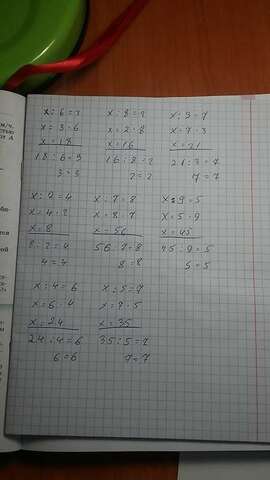 x:6=3
x=3·6
x=18
18:6=3
3=3
x:8=2
x=2·8
x=16
16:8=2
2=2
x:3=7
x=7·3
x=21
21:3=7
7=7
x:2=4
x=4·2
x=8
8:2=4
4=4
x:7=8
x=8·7
x=56
56:7=8
8=8
x:9=5
x=5·9
x=45
45:9=5
5=5
x:4=6
x=6·4
x=24
24:4=6
6=6
x:5=7
x=7·5
x=35
35:5=7
7=7